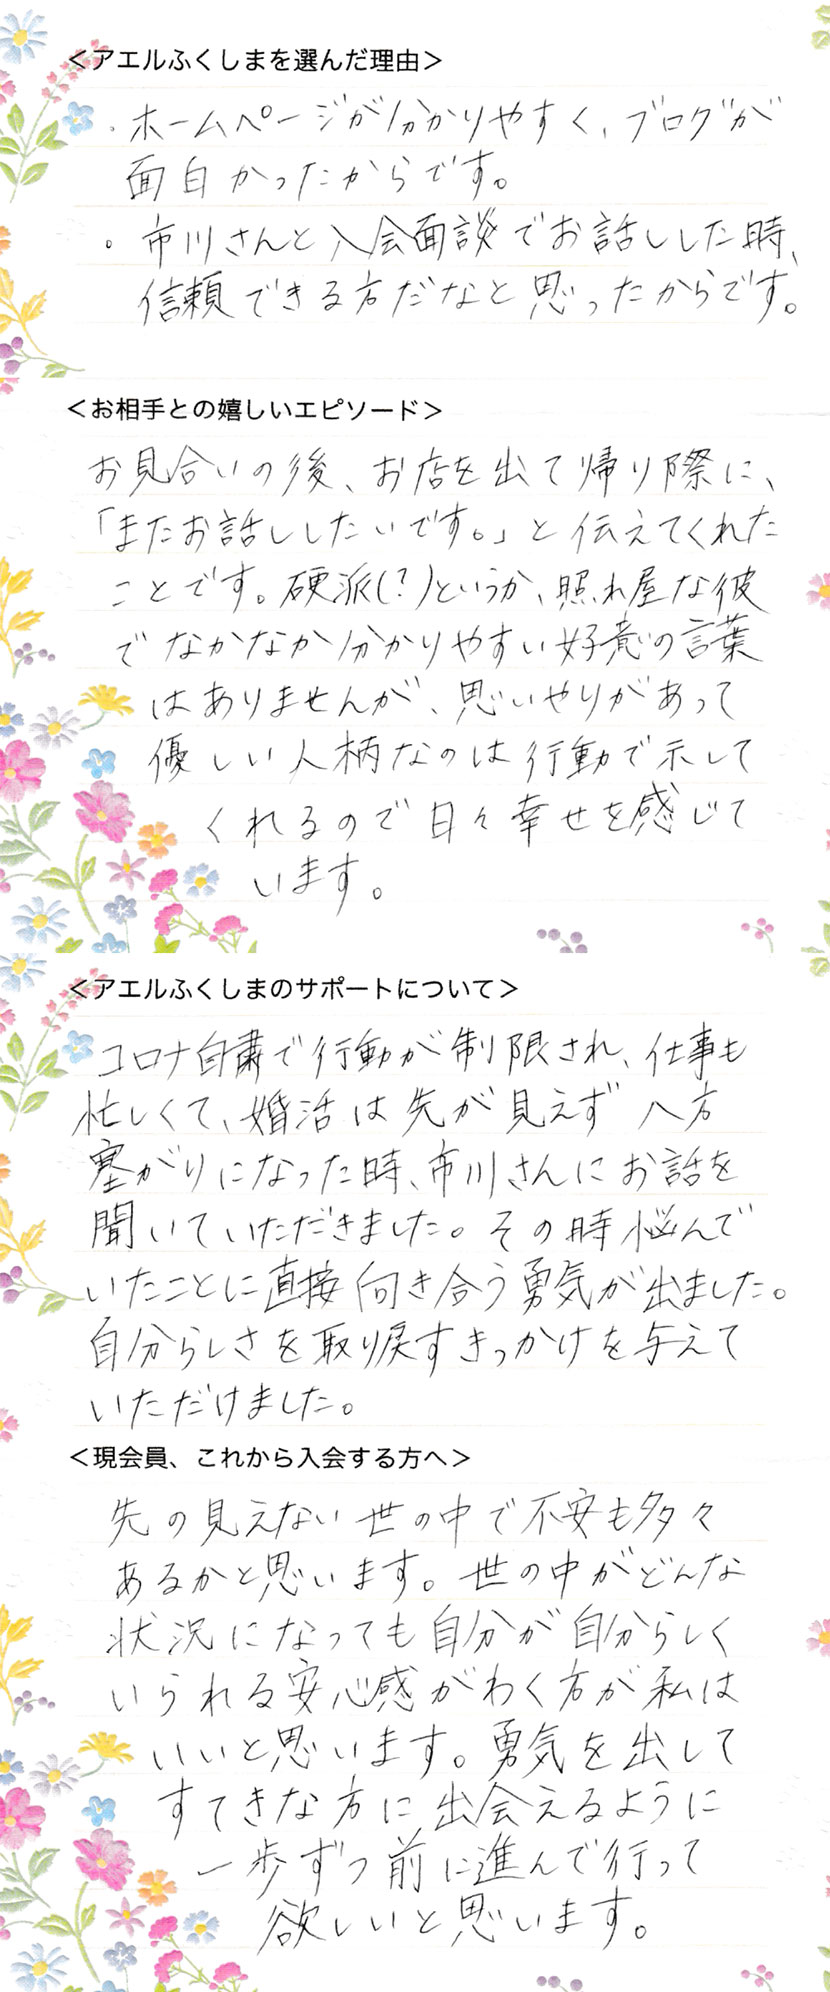 ＜アエルふくしまを選んだ理由＞
・ホームページが分かりやすく、ブログが
面白かったからです。
。市川さんと入会面談でお話しした時、
信頼できる方だなと思ったからです。
＜お相手との嬉しいエピソード＞
お見合いの後、お店を出て帰り際に、
「またお話ししたいです。」と伝えてくれた
ことです。硬派(?)というか、照れ屋な彼
でなかなか分かりやすい好意の言葉
はありませんが、思いやりがあって
優しい人柄なのは行動で示して
くれるので日々幸せを感じて
います。
＜アエルふくしまのサポートについて＞
コロナ自粛で行動が制限され、仕事も
忙しくて、婚活は先が見えず八方
塞がりになった時、市川さんにお話を
聞いていただきました。その時悩んで
いたことに直接向き合う勇気が出ました。
自分らしさを取り戻すきっかけを与えて
いただけました。
＜現会員、これから入会する方へ＞
先の見えない世の中で不安も多々
あるかと思います。世の中がどんな
状況になっても自分が自分らしく
いられる安心感がわく方が私は
いいと思います。勇気を出して
すてきな方に出会えるように
一歩ずつ前に進んで行って
欲しいと思います。